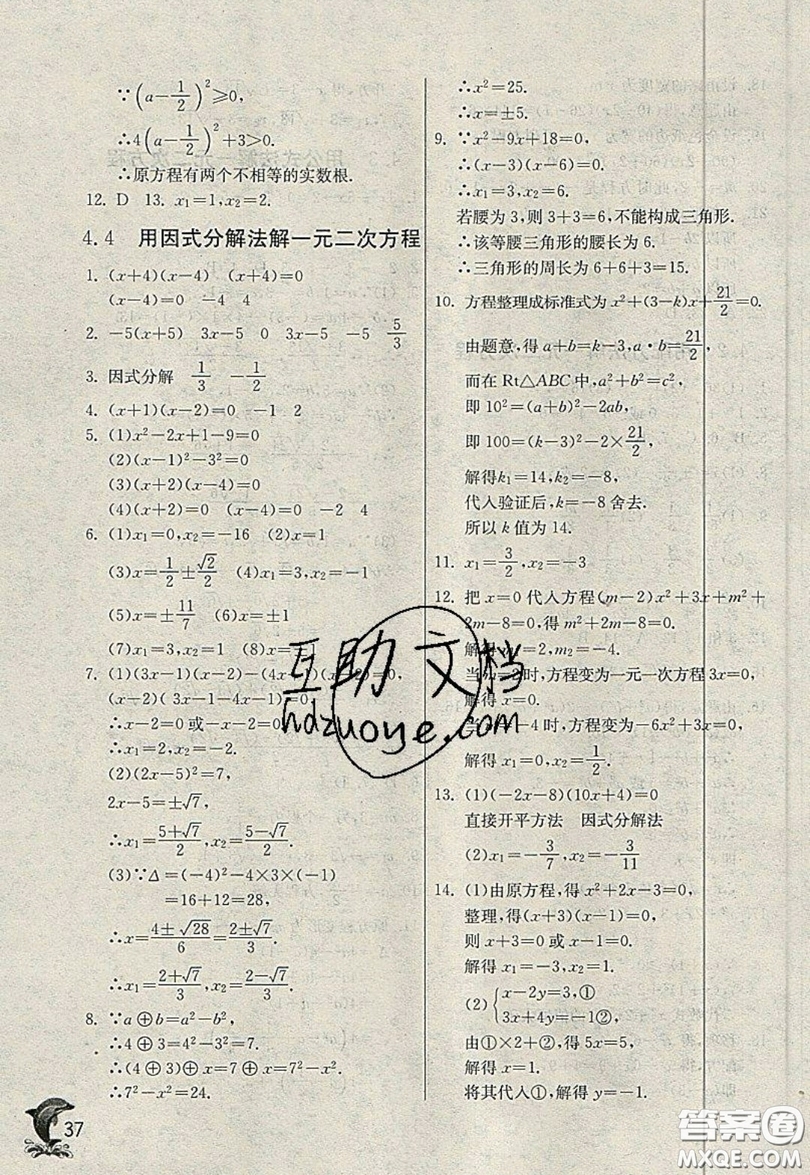 ∵(a-1/2)²≥0,
∴4(a-1/2)²+3>0.
∴原方程有两个不相等的实数根.
12. D 13. x₁=1,x₂=2.
4.4 用因式分解法解一元二次方程
1. (x+4)(x-4) (x+4)=0
(x-4)=0 -4 4
2. -5(x+5) 3x-5 0 3x-5 -5 5/3
3. 因式分解 1/3 -1/2
4. (x+1)(x-2)=0 -1 2
5. (1)x²-2x+1-9=0
(2)(x-1)²-3²=0
(3)(x+2)(x-4)=0
(4)(x+2)=0 (x-4)=0 -2 4
6. (1)x₁=0,x₂=-16 (2)x=1
(3)x=1/2±√2/2 (4)x₁=3,x₂=1
(5)x=±11/7 (6)x=±1
(7)x₁=3,x₂=1 (8)x₁=
7. (1)(3x-1)(x-2)-(4x- )(x-2)=0,
(x-2)( 3x-1-4x-1)=0
∴x-2=0或-x-2=0.
∴x₁=2,x₂=-2.
(2)(2x-5)²=7,
2x-5=±√7,
∴x₁=(5+√7)/2,x₂=(5-√7)/2.
(3)∵Δ=(-4)²-4×3×(-1)
=16+12=28,
∴x=(4±√28)/6=(2±√7)/3,
∴x₁=(2+√7)/3,x₂=(2-√7)/3.
8. ∵a⊕b=a²-b²,
∴4⊕3=4²-3²=7.
∴(4⊕3)⊕x=7⊕x=7²-x².
∴7²-x²=24.
37
∴x²=25.
∴x=±5.
9. ∵x²-9x+18=0,
∴(x-3)(x-6)=0.
∴x₁=3,x₂=6.
若腰为3,则3+3=6,不能构成三角形.
∴该等腰三角形的腰长为6.
∴三角形的周长为6+6+3=15.
10. 方程整理成标准式为x²+(3-k)x+21/2=0.
由题意,得a+b=k-3,a·b=21/2,
而在Rt△ABC中,a²+b²=c²,
即10²=(a+b)²-2ab,
即100=(k-3)²-2×21/2,
解得k₁=14,k₂=-8,
代入验证后,k=-8舍去.
所以k值为14.
11. x₁=3/2,x₂=-3
12. 把x=0代入方程(m-2)x²+3x+m²+
2m-8=0,得m²+2m-8=0.
解得m₁=2,m₂=-4.
当m=2时,方程变为一元一次方程3x=0,
解得x=0.
当m=-4时,方程变为-6x²+3x=0,
解得x₁=0,x₂=1/2.
13. (1)(-2x-8)(10x+4)=0
直接开平方法 因式分解法
(2)x₁=-3/7,x₂=-3/11
14. (1)由原方程,得x²+2x-3=0,
整理,得(x+3)(x-1)=0,
则x+3=0或x-1=0.
解得x₁=-3,x₂=1.
(2){x-2y=3,①
3x+4y=-1②,
由①×2+②,得5x=5,
解得x=1.
将其代入①,解得y=-1.
互助文档
hdzuoye.com
答案圈
MXQE.COM